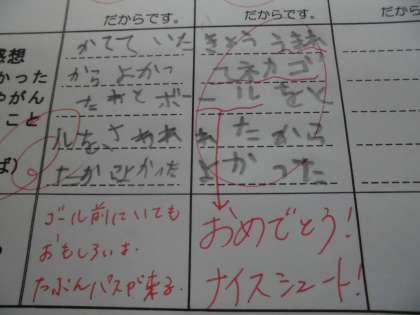 だからです。
だからです。
感想
かった
やがん
こと
ば)
かてて いた
からよかっ
たあとボー
ルを、さわれ
たからよかった
きょう うま
てネカゴ
ールをと
れたから
よかった
ゴール前にいても
おもしろいよ。
たぶんパスが来る。
おめでとう!
ナイスシュート!